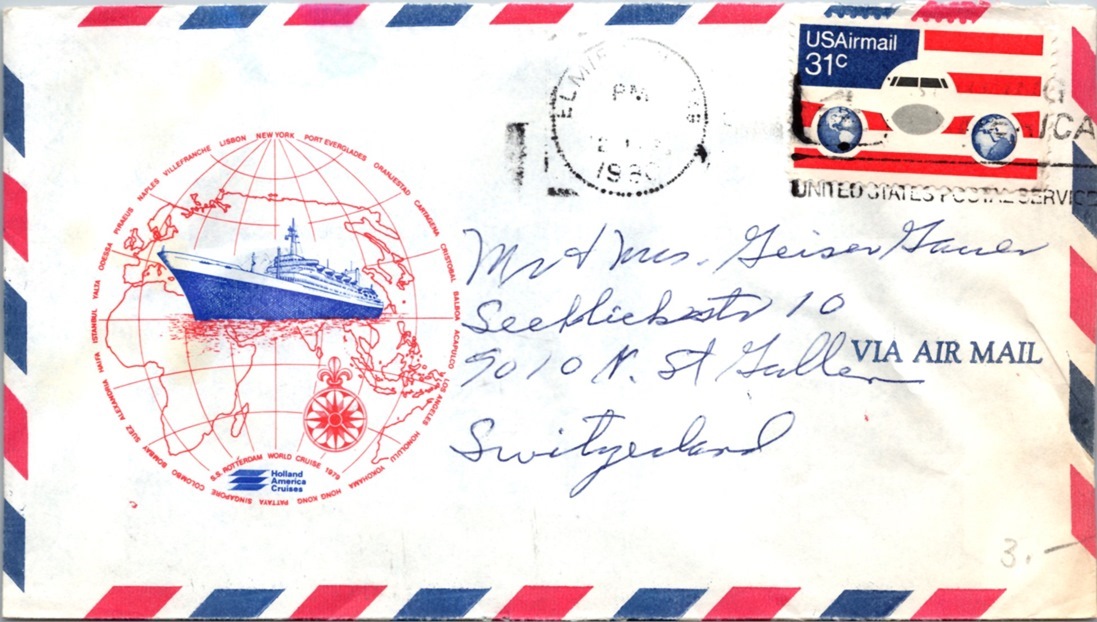 USAirmail
31c
ELMI
PM
1980
UNITED STATES POSTAL SERVICE
Mr & Mrs. Geiser Gauer
Seeblickstr 10
9010 N. St Gallen
VIA AIR MAIL
Switzerland
NEW YORK PORT EVERGLADES ORANJESTAD CARTAGENA CRISTOBAL BALBOA ACAPULCO LOS ANGELES HONOLULU YOKOHAMA HONG KONG PATTAYA SINGAPORE COLOMBO BOMBAY SUEZ ALEXANDRIA HAIFA ISTANBUL YALTA ODESSA PIRAEUS NAPLES VILLEFRANCHE LISBON
S.S. ROTTERDAM WORLD CRUISE 1979
Holland
America
Cruises
3.-